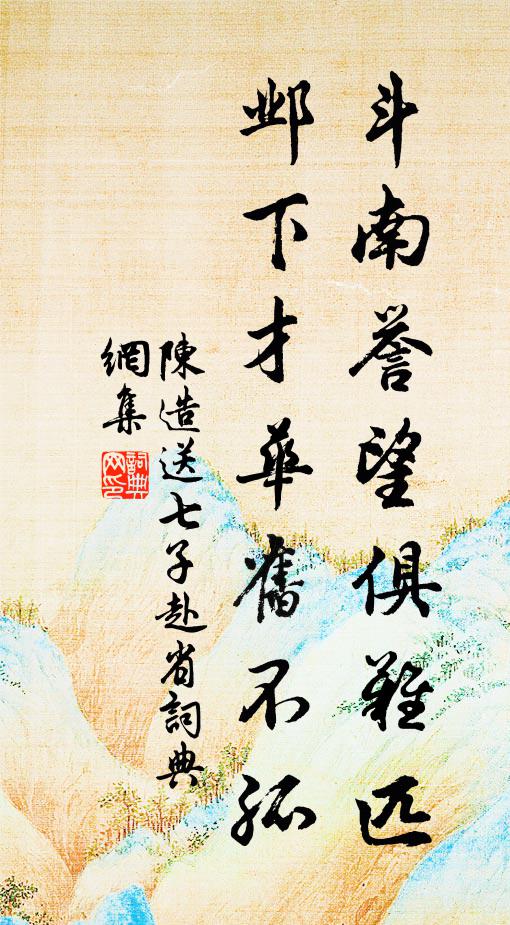 斗南誉望俱難匹
邺下才華舊不孤
陳造送七子赴省詞典
網集
詞典
网印